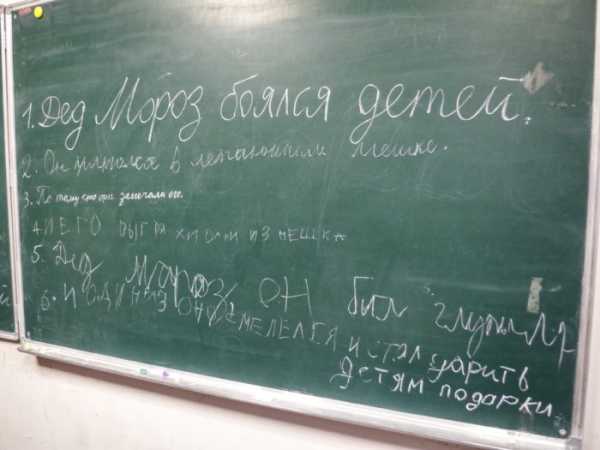 1. Дед Мороз боялся детей.
2. Он в мешке.
3. По тому что они замечали его.
4. И ЕГО ИЗ МЕШКА
5. Дед Мороз, он был глупый
6. И ОДИН РАЗ ОН ОСМЕЛЕЛСЯ И СТАЛ дарить
Детям подарки